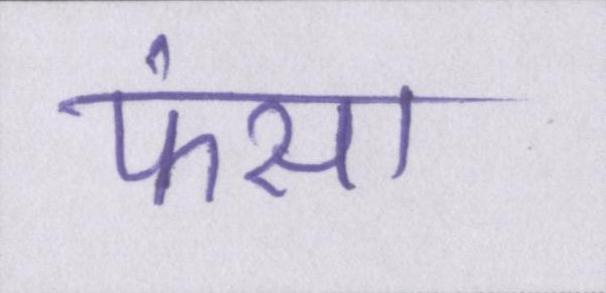 फंसा